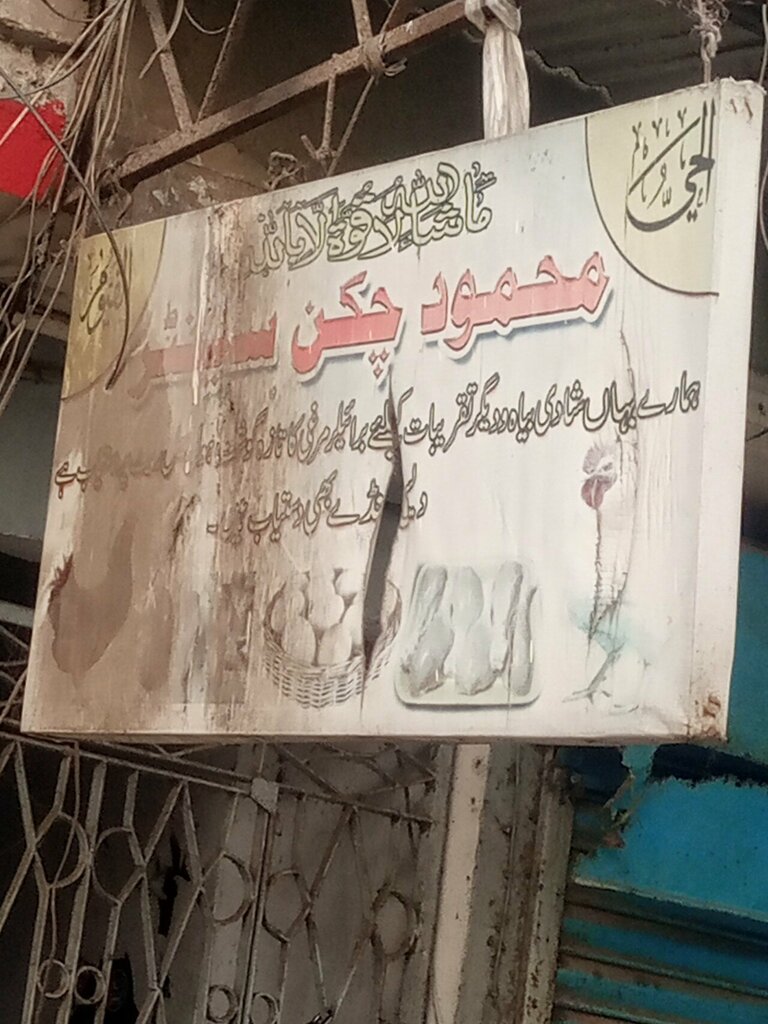 الحی
القیوم
ماشاءاللہ لا قوۃ الا باللہ
محمود چکن سینٹر
ہمارے یہاں شادی بیاہ ودیگر تقریبات کیلئے برائیلر مرغی کا تازہ گوشت پر دستیاب ہے
دیسی انڈے بھی دستیاب ہیں۔